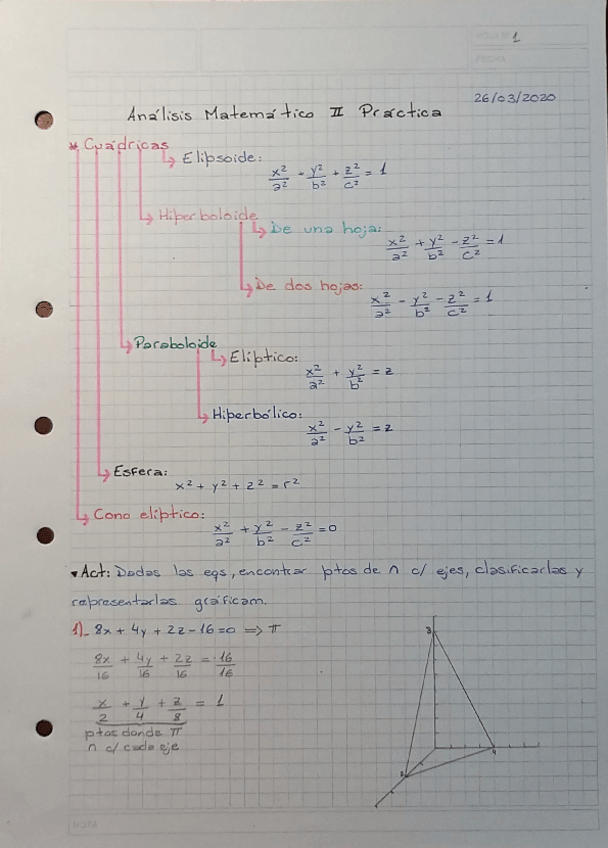 HOJA Nº 1
FECHA
26/03/2020
Análisis Matemático II Práctica
* Cuádricas
↳ Elipsoide:
x²/a² + y²/b² + z²/c² = 1
↳ Hiperboloide
↳ De una hoja:
x²/a² + y²/b² - z²/c² = 1
↳ De dos hojas:
x²/a² - y²/b² - z²/c² = 1
↳ Paraboloide
↳ Elíptico:
x²/a² + y²/b² = z
↳ Hiperbólico:
x²/a² - y²/b² = z
↳ Esfera:
x² + y² + z² = r²
↳ Cono elíptico:
x²/a² + y²/b² - z²/c² = 0
▾ Act: Dadas las eqs, encontrar ptos de ∩ c/ ejes, clasificarlas y
representarlas gráficam.
1)_ 8x + 4y + 2z - 16 = 0 ⇒ π
8x/16 + 4y/16 + 2z/16 = 16/16
x/2 + y/4 + z/8 = 1
ptos donde π
∩ c/ cada eje
8
4
2
NOTA